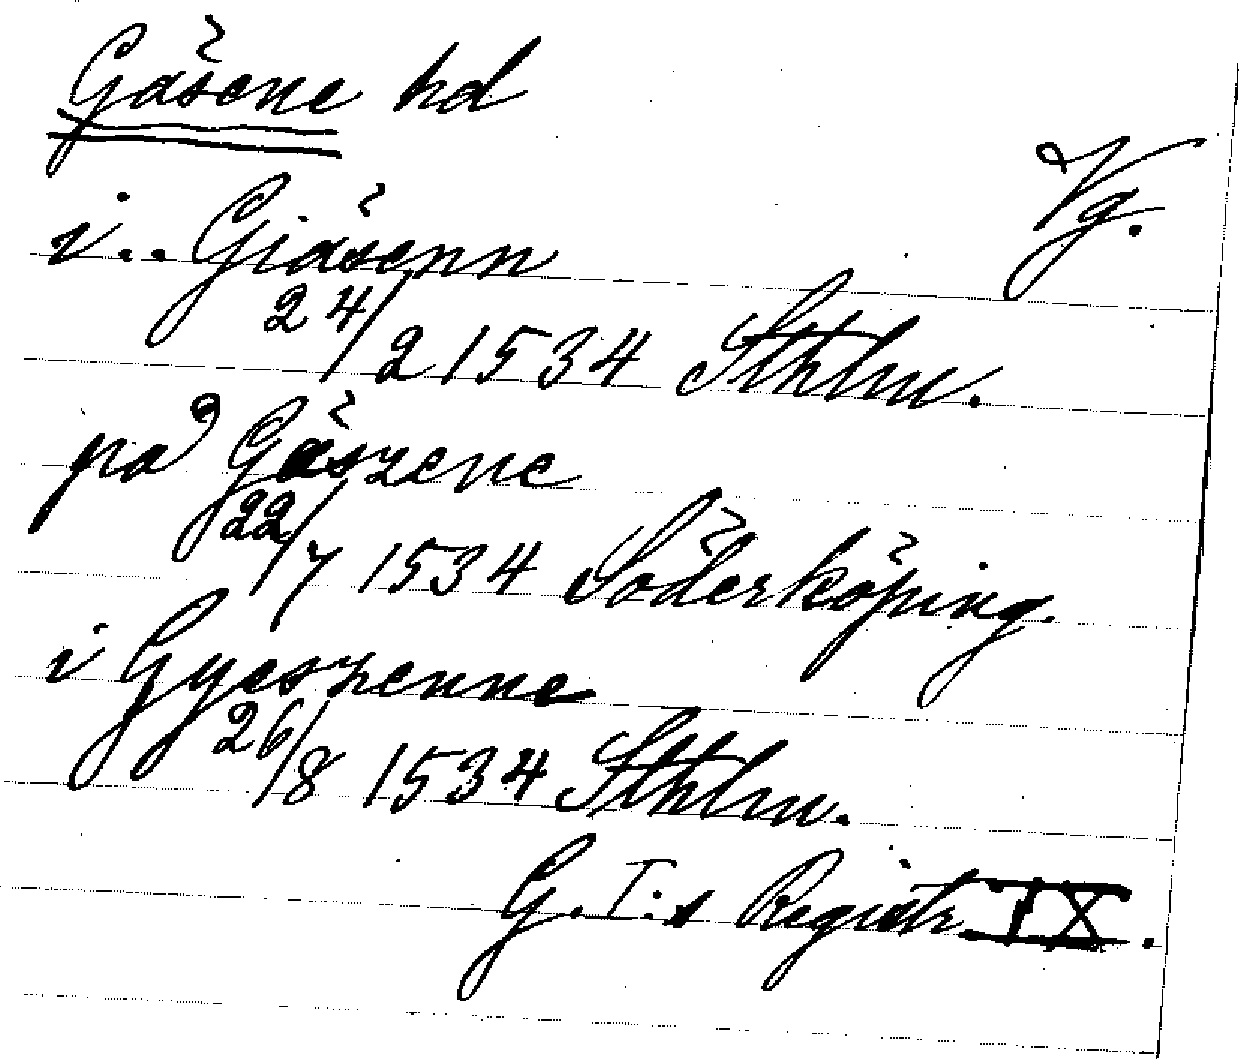 Gäsene hd
Vg.
i.. Giäsenn
24/2 1534 Sthlm.
på Gäszene
22/7 1534 Söderköping.
i Gyeszenne
26/8 1534 Sthlm.
G. I:s Registr. IX.